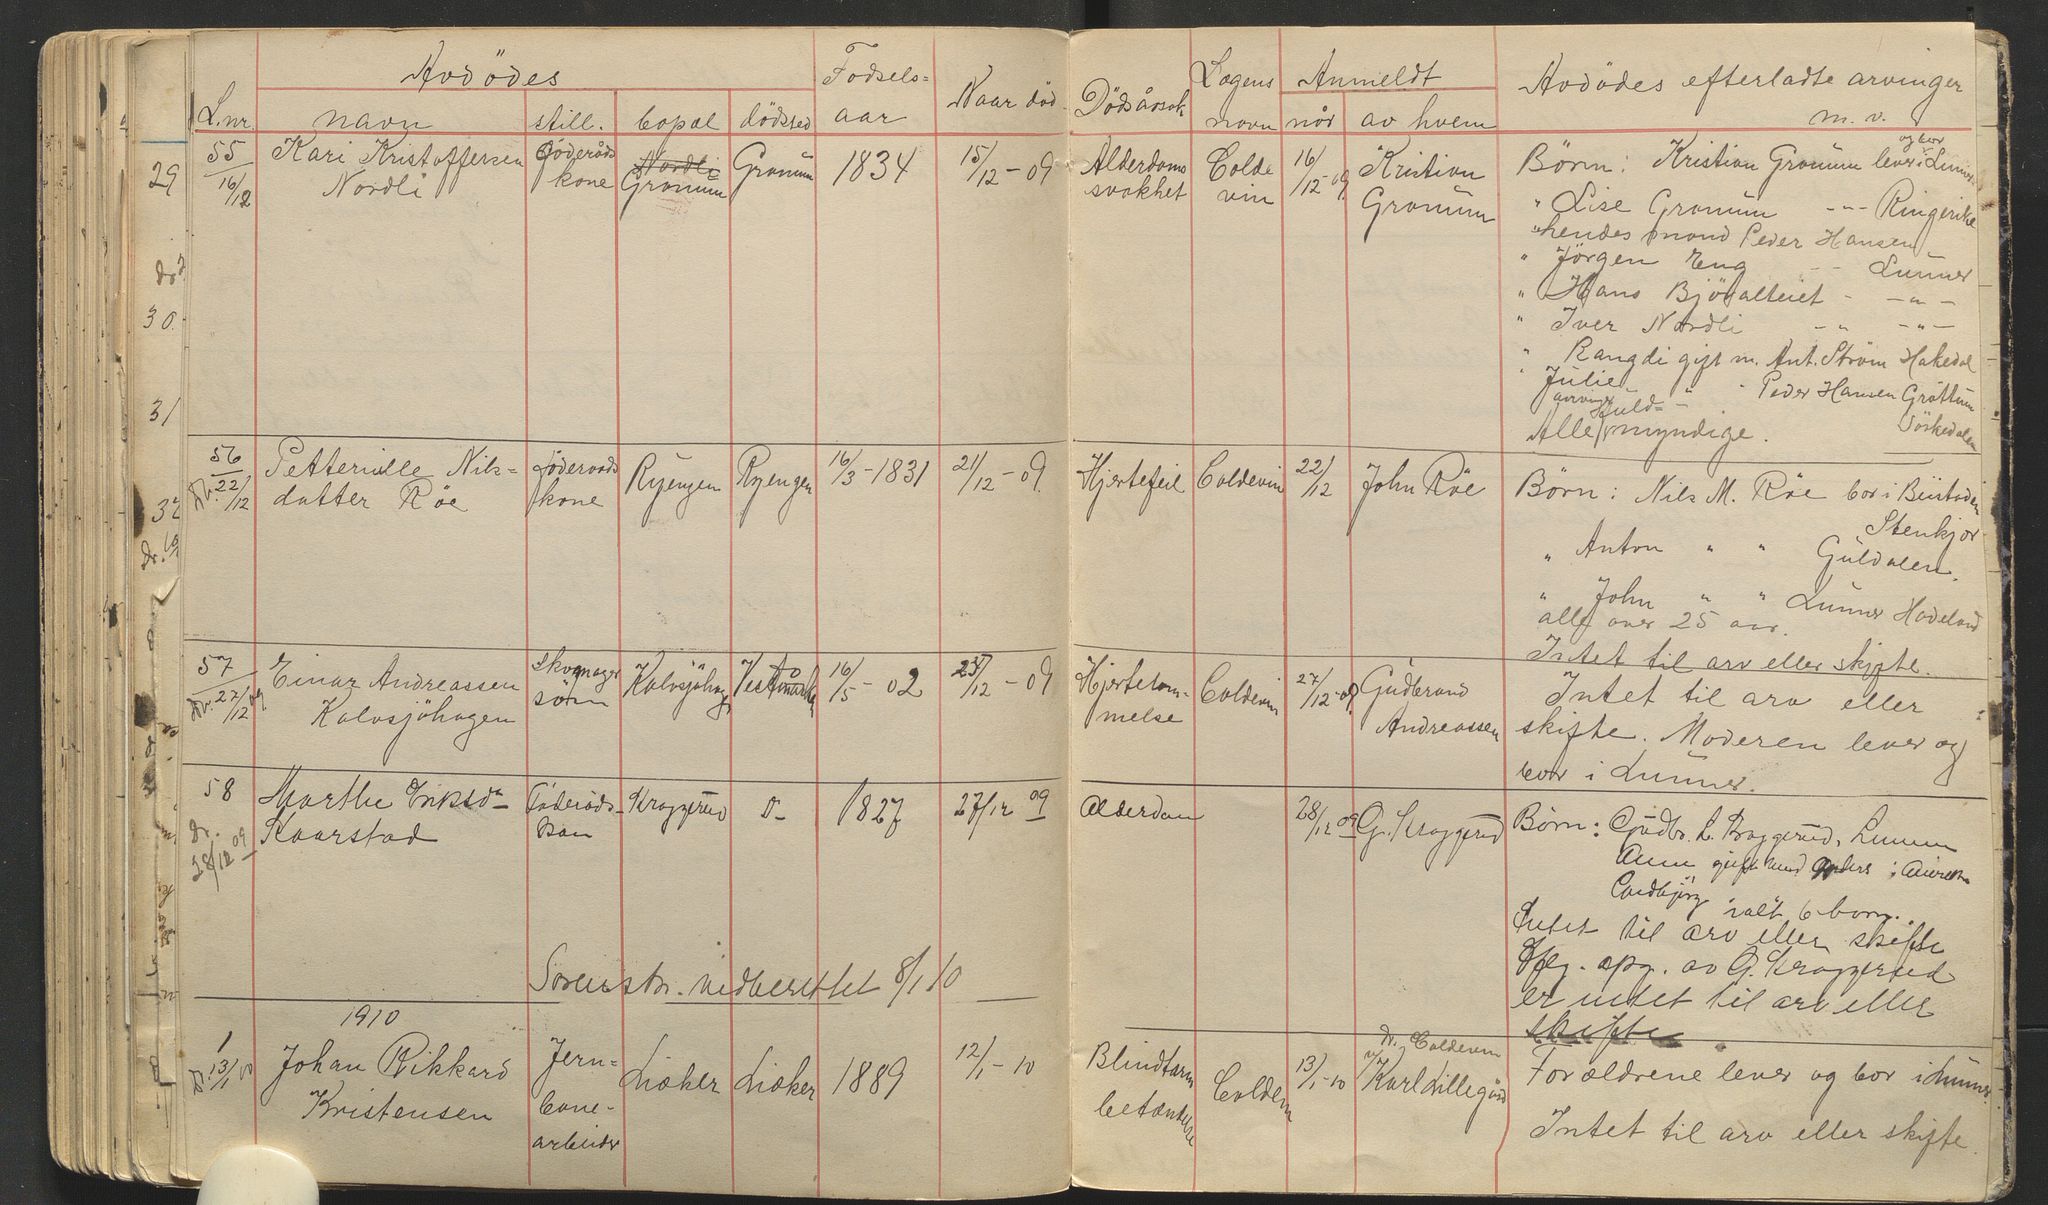 Avdødes
Fødsels-
aar
Naar død
L.nr.
navn
still.
bopæl
dødssted
Dødsårsak
Lægens
navn
Anmeldt
når
av hvem
Avdødes efterladte arvinger
m. v.
29
30.
31
32
55
16/12
Kari Kristoffersen
Nordli
Föderåds
kone
Nordli
Granum
Granum
1834
15/12 - 09
Alderdoms
svakhet
Colde
vin
16/12 - 09
Kristian
Granum
Børn: Kristian Granum lever og bor i Lunner
" Lise Granum -"- Ringerike
"hendes mand Peder Hansen
" Jörgen Eng - - Lunner
" Hans Björalteiet - -"-
" Iver Nordli -"- -"-
" Rangdi gift m. Ant. Ström Hakedal
" Julie " " Peder Hansen Gröttum
Sörkedalen
Alle arvinger fuld-
myndige.
56
22/12
Petternille Nils-
datter Röe
föderaads
kone
Ryengen
Ryengen
16/3 - 1831
21/12 - 09.
Hjertefeil
Coldevin
22/12
John Röe
Börn: Nils M. Röe bor i
Stenkjær
" Anton " " Guldalen.
" John " " Lunner Hadeland
alle over 25 aar.
Intet til arv eller skifte.
57
27/12 09
Einar Andreassen
Kalvsjöhagen
skomager
sönn
Kalvsjöhag
Vestmarka
16/5 - 02
23/12 - 09
Hjertelam-
melse
Coldevin
27/12 - 09.
Gudbrand
Andreassen
Intet til arv eller
skifte. Moderen lever og
bor i Lunner.
58
Dr.
28/12 09
Marthe Eriksd-
Kaarstad
Föderåds-
Kraggerud
D-
1827
27/12 09
Alderdom
28/12 09
G. Kraggerud
Børn: Gudbr. L. Kraggerud, Lunner
Anne gift med Anders i
ialt 6 barn.
Intet til arv eller skifte
Iflg. opg. av G. Kraggerud
er intet til arv eller
skifte
Sorenskr. indberettet 8/1 10
1910
1
13/1 10
Johan Rikkard
Kristensen
Jern-
bane-
arbeider
Liæker
Liæker
1889
12/1 - 10
Blindtarm
betændelse
Coldevin
13/1 - 10
dr. Coldevin
v/ Karl Lillegård
Forældrene lever og bor i Lunner.
Intet til arv eller skifte.